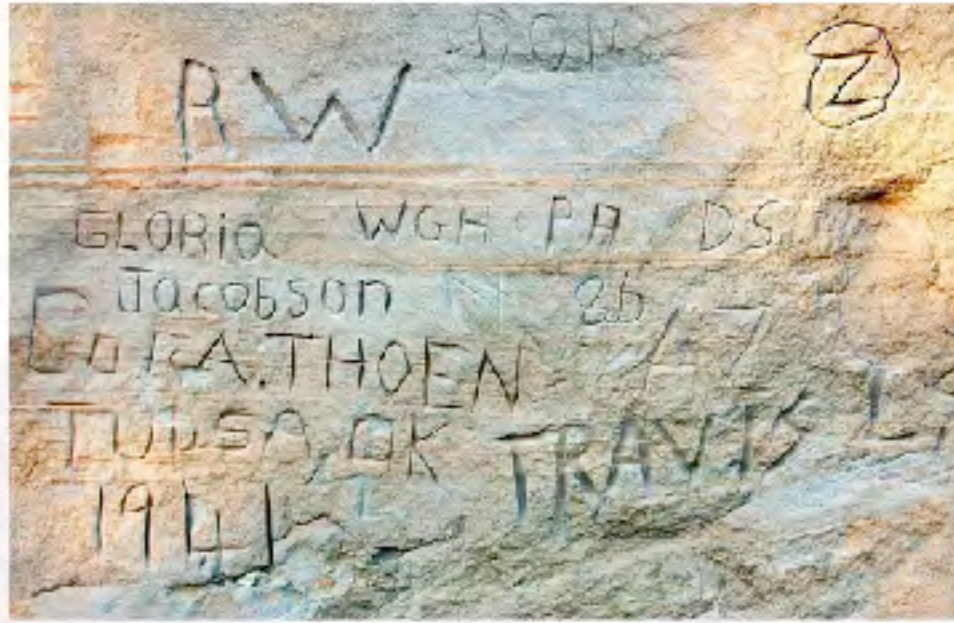 Z
RW
GLORIA WGH PA DS
Jacobson
A. THOEN
TULSA, OK TRAVIS L
1941